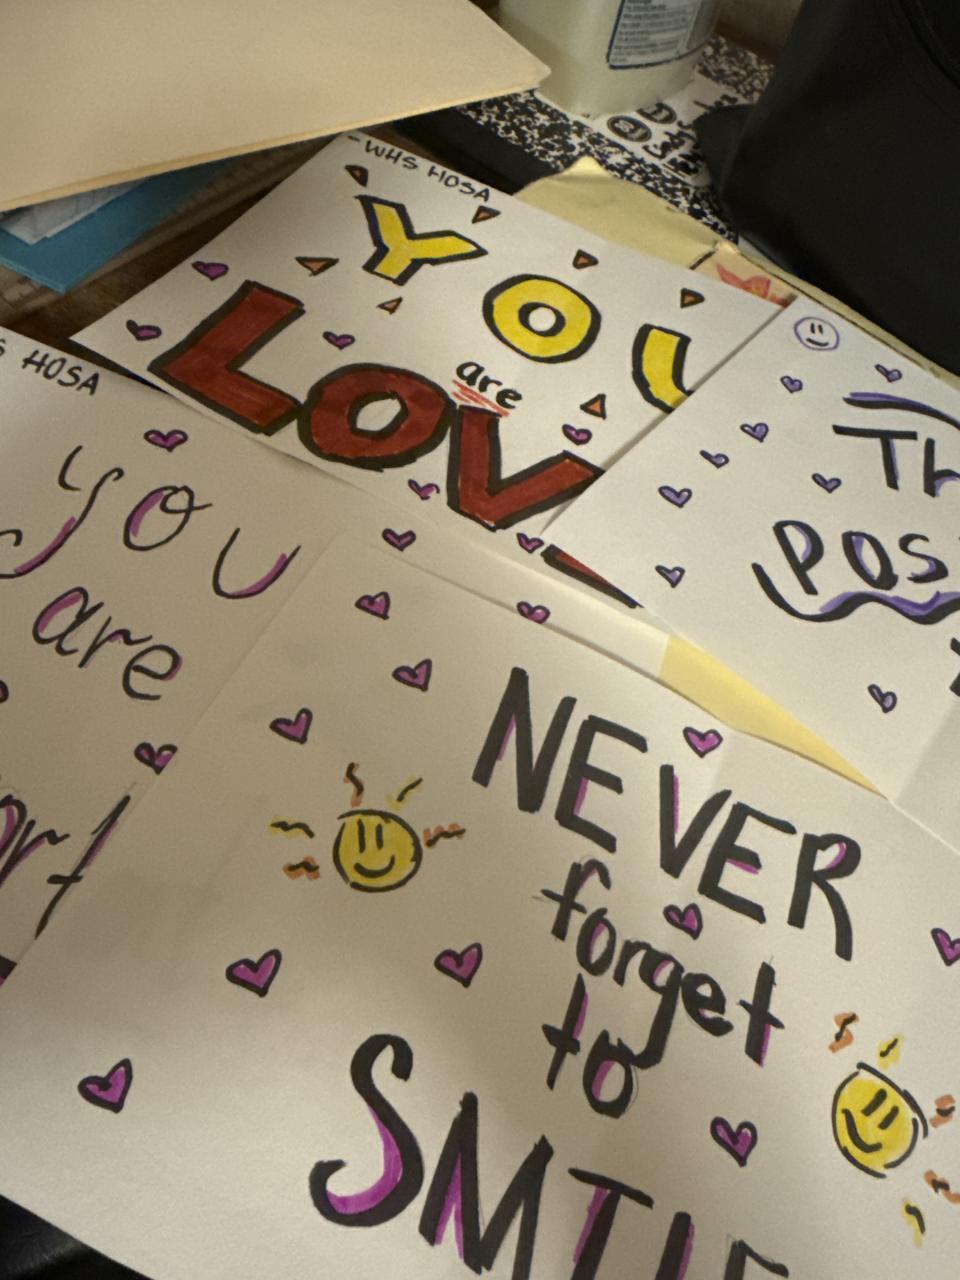 - WHS HOSA
YOU
are
LOV
S HOSA
you
are
Th
Pos
NEVER
forget
to
SMIL